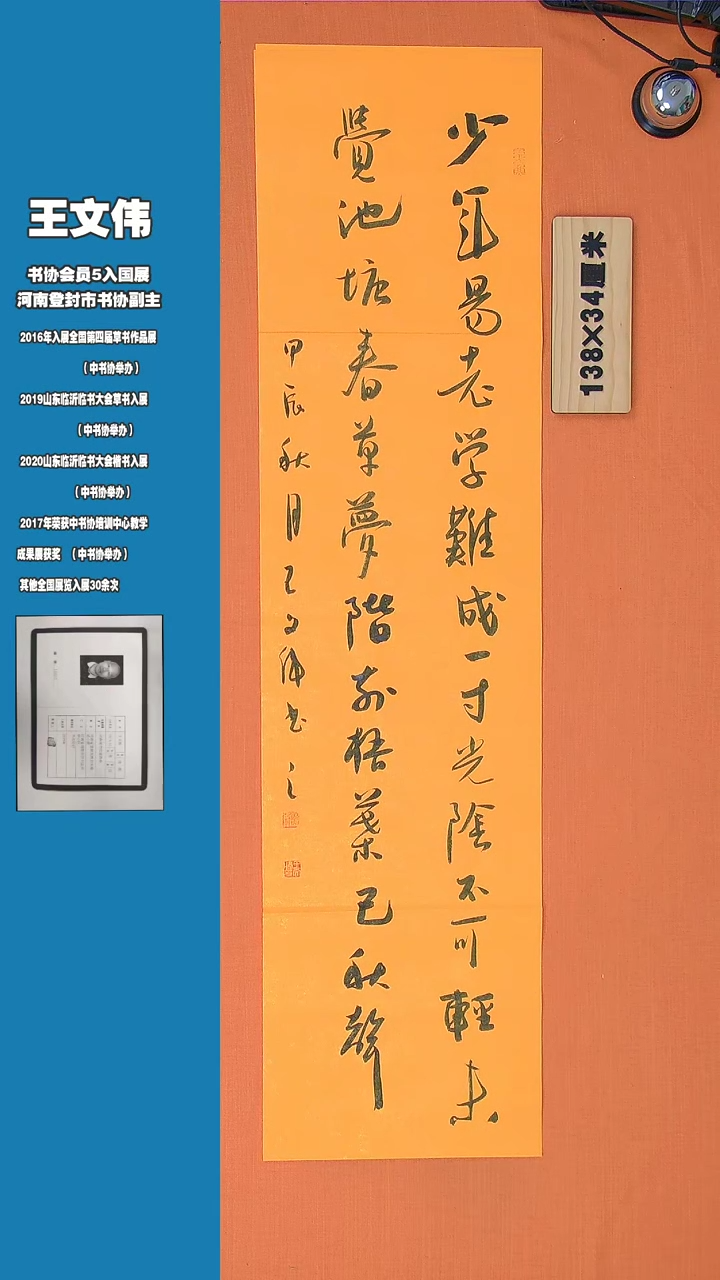 王文伟
书协会员5入国展
河南登封市书协副主
2016年入展全国第四届草书作品展
（中书协举办）
2019山东临沂临书大会草书入展
（中书协举办）
2020山东临沂临书大会楷书入展
（中书协举办）
2017年荣获中书协培训中心教学
成果展获奖 （中书协举办）
其他全国展览入展30余次
138×34厘米
少年易老学難成一寸光陰不可輕未
覺池塘春草夢階前梧葉已秋聲
甲辰秋月王文伟书之